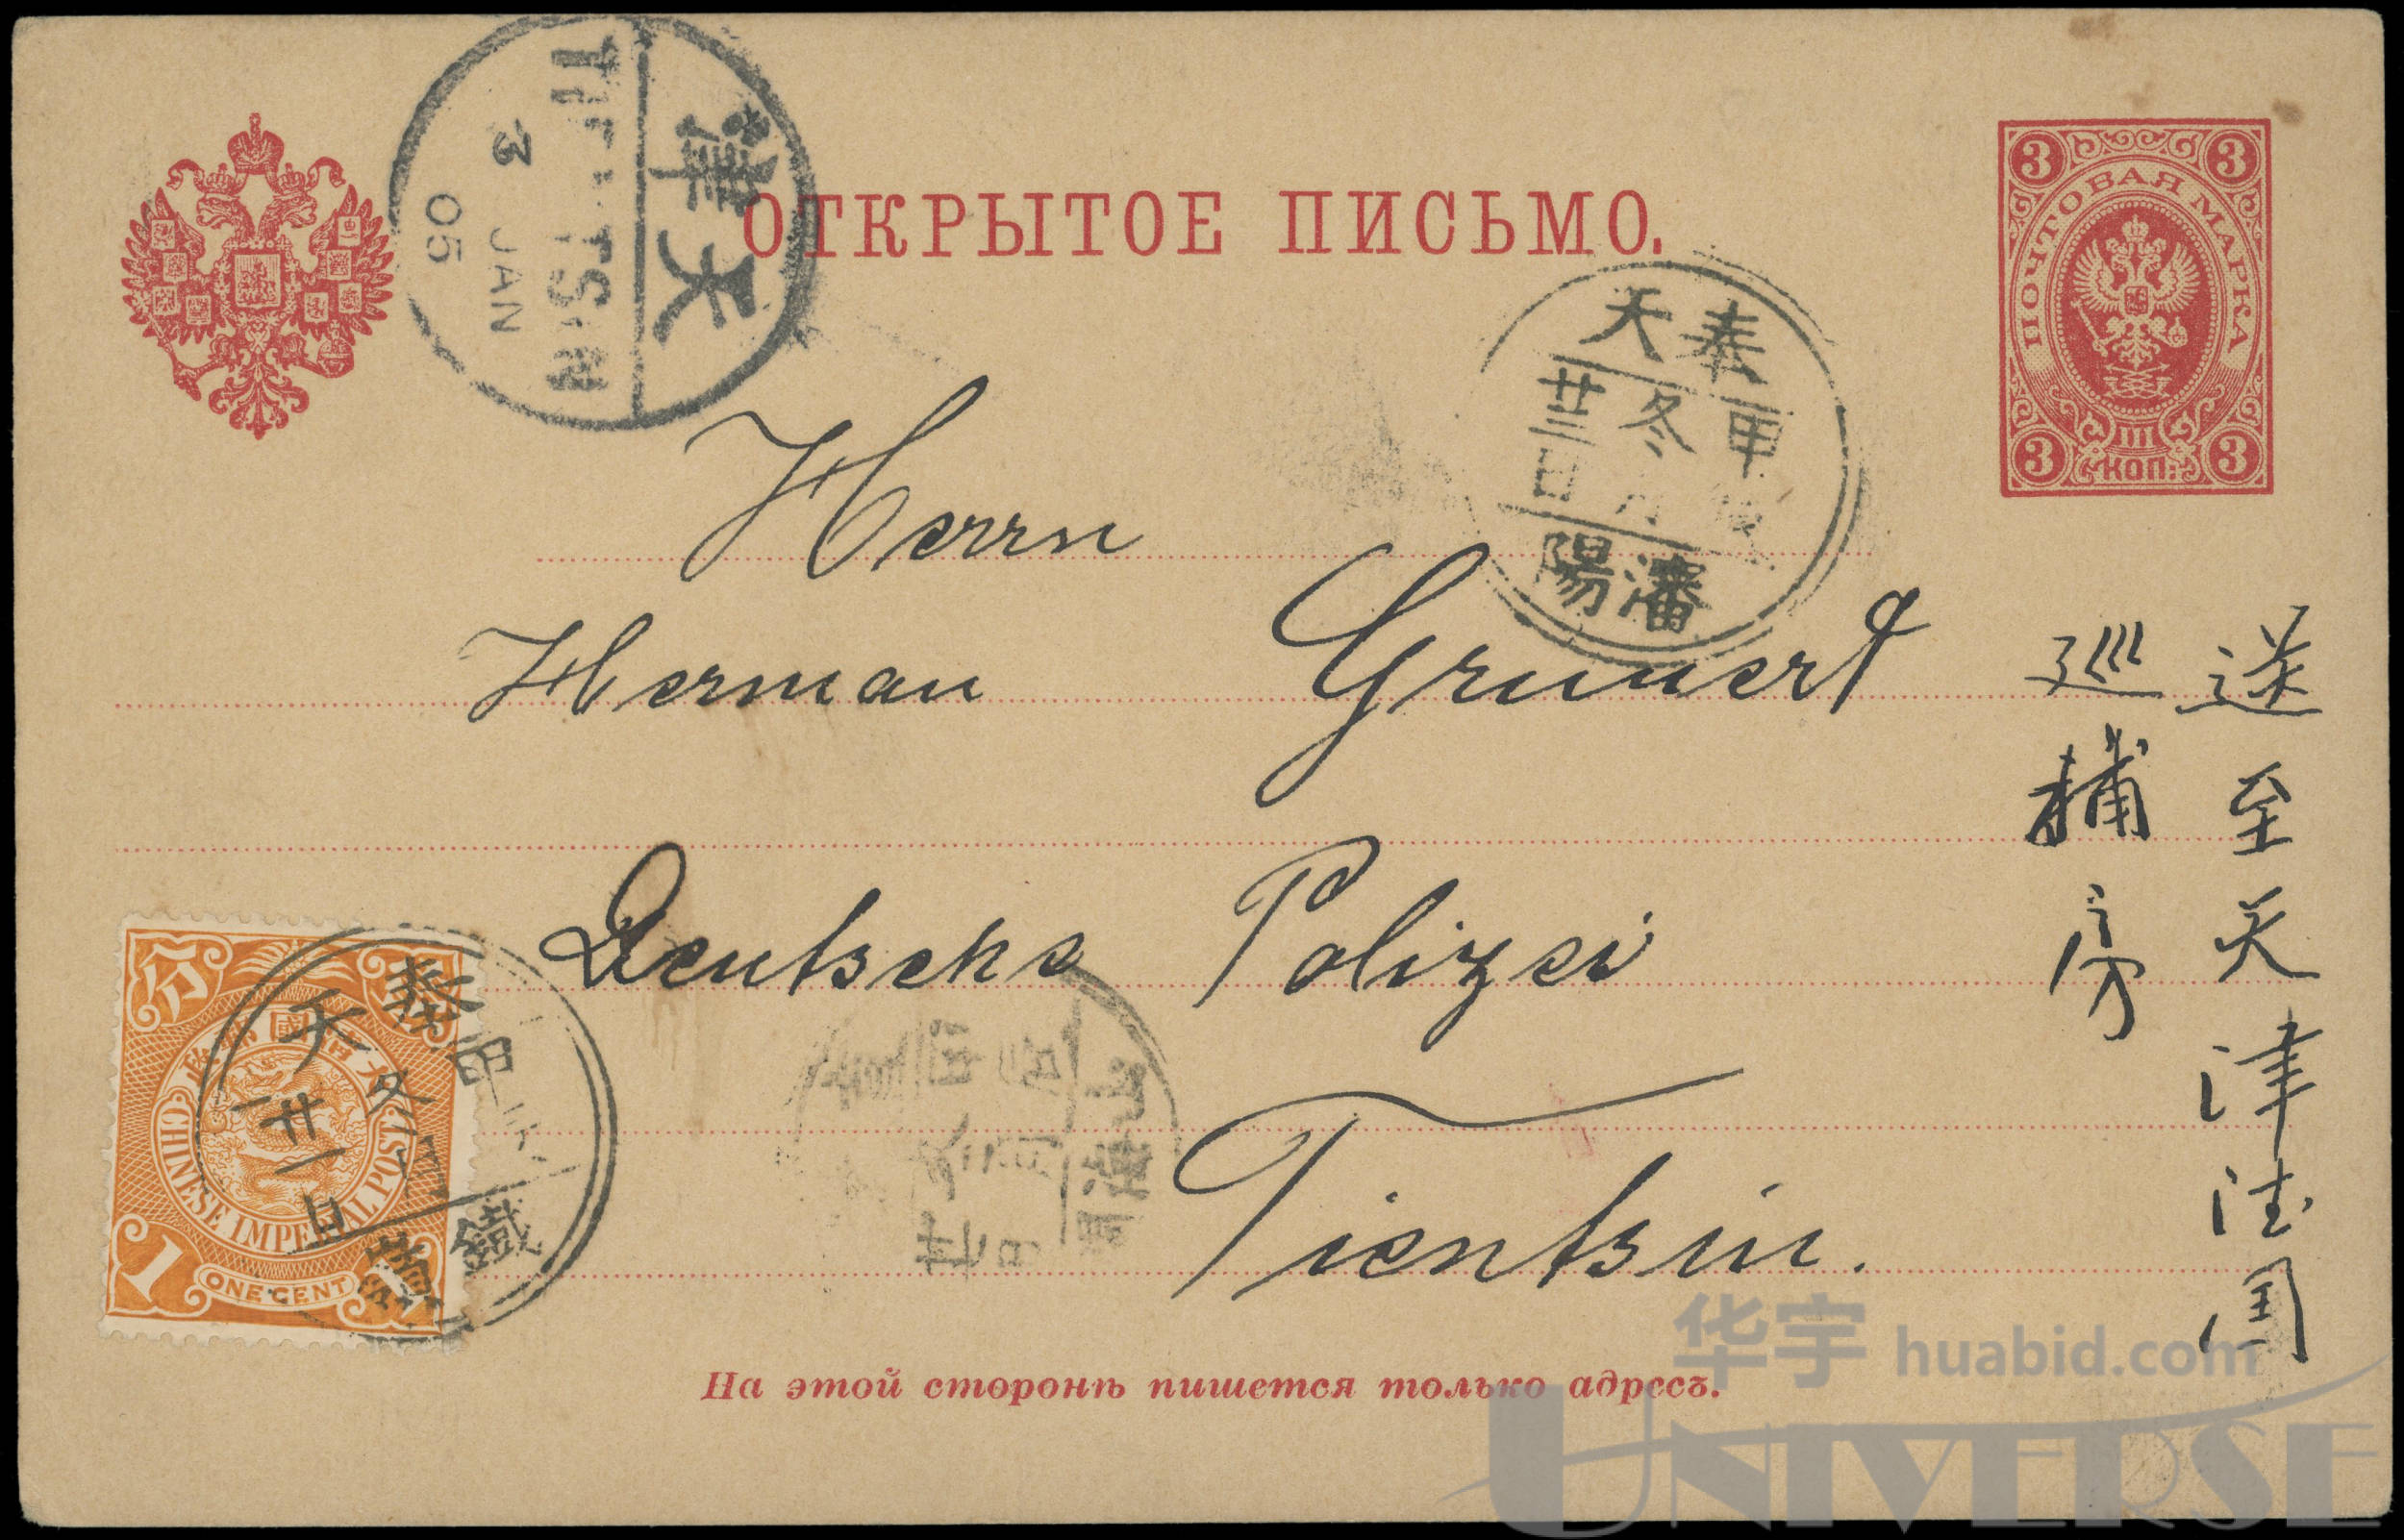 天津
TIENTSIN
3 JAN
05
ОТКРЫТОЕ ПИСЬМО.
3
3
ПОЧТОВАЯ МАРКА
III
КОП.
3
3
奉天
甲
冬月
廿三日
瀋陽
Herrn
Herman Grunert
Deutsche Polizei
Tientsin.
送至天津法國
巡捕房
分
大清國郵政
CHINESE IMPERIAL POST
1
ONE CENT
1
奉天
甲
冬月
廿一日
鐵嶺
На этой сторонѣ пишется только адресъ.
华宇 huabid.com
UNIVERSE